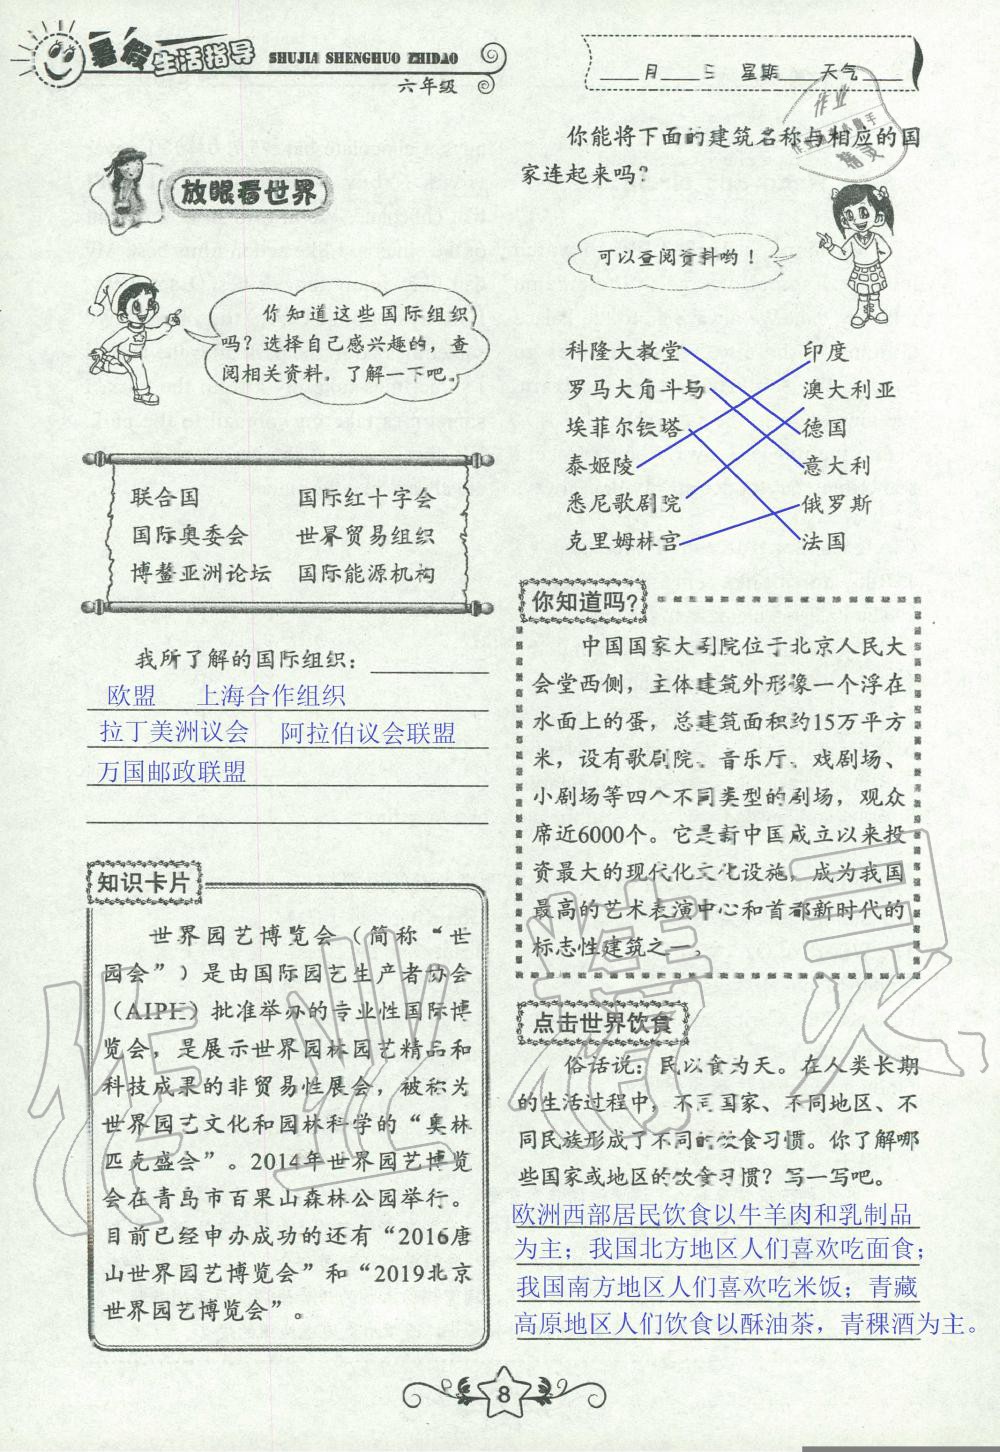 暑假生活指导 SHUJIA SHENGHUO ZHIDAO
六年级
月 日 星期 天气
放眼看世界
你知道这些国际组织
吗？选择自己感兴趣的，查
阅相关资料，了解一下吧。
联合国 国际红十字会
国际奥委会 世界贸易组织
博鳌亚洲论坛 国际能源机构
我所了解的国际组织：
欧盟 上海合作组织
拉丁美洲议会 阿拉伯议会联盟
万国邮政联盟
知识卡片
世界园艺博览会（简称“世
园会”）是由国际园艺生产者协会
（AIPH）批准举办的专业性国际博
览会，是展示世界园林园艺精品和
科技成果的非贸易性展会，被称为
世界园艺文化和园林科学的“奥林
匹克盛会”。2014年世界园艺博览
会在青岛市百果山森林公园举行。
目前已经申办成功的还有“2016唐
山世界园艺博览会”和“2019北京
世界园艺博览会”。
你能将下面的建筑名称与相应的国
家连起来吗？
可以查阅资料哟！
科隆大教堂 印度
罗马大角斗场 澳大利亚
埃菲尔铁塔 德国
泰姬陵 意大利
悉尼歌剧院 俄罗斯
克里姆林宫 法国
你知道吗？
中国国家大剧院位于北京人民大
会堂西侧，主体建筑外形像一个浮在
水面上的蛋，总建筑面积约15万平方
米，设有歌剧院、音乐厅、戏剧场、
小剧场等四个不同类型的剧场，观众
席近6000个。它是新中国成立以来投
资最大的现代化文化设施，成为我国
最高的艺术表演中心和首都新时代的
标志性建筑之一。
点击世界饮食
俗话说：民以食为天。在人类长期
的生活过程中，不同国家、不同地区、不
同民族形成了不同的饮食习惯。你了解哪
些国家或地区的饮食习惯？写一写吧。
欧洲西部居民饮食以牛羊肉和乳制品
为主；我国北方地区人们喜欢吃面食；
我国南方地区人们喜欢吃米饭；青藏
高原地区人们饮食以酥油茶，青稞酒为主。
8
作业精灵